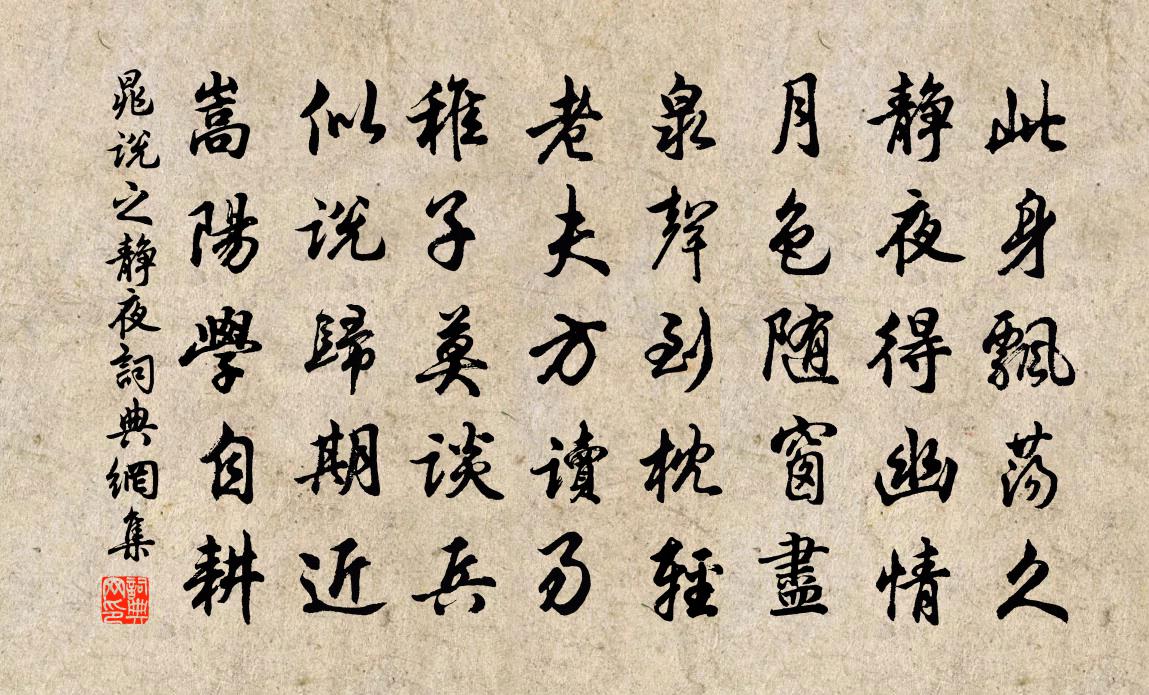 此身飄蕩久
静夜得幽情
月色随窗盡
泉聲到枕輕
老夫方讀易
稚子莫談兵
似説歸期近
嵩陽學自耕
晁説之静夜詞典網集
詞典网印